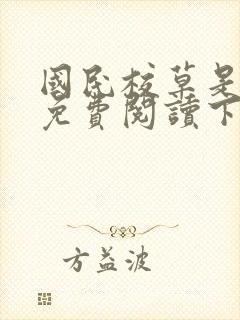 國民校草是
免費閱讀下
方益波